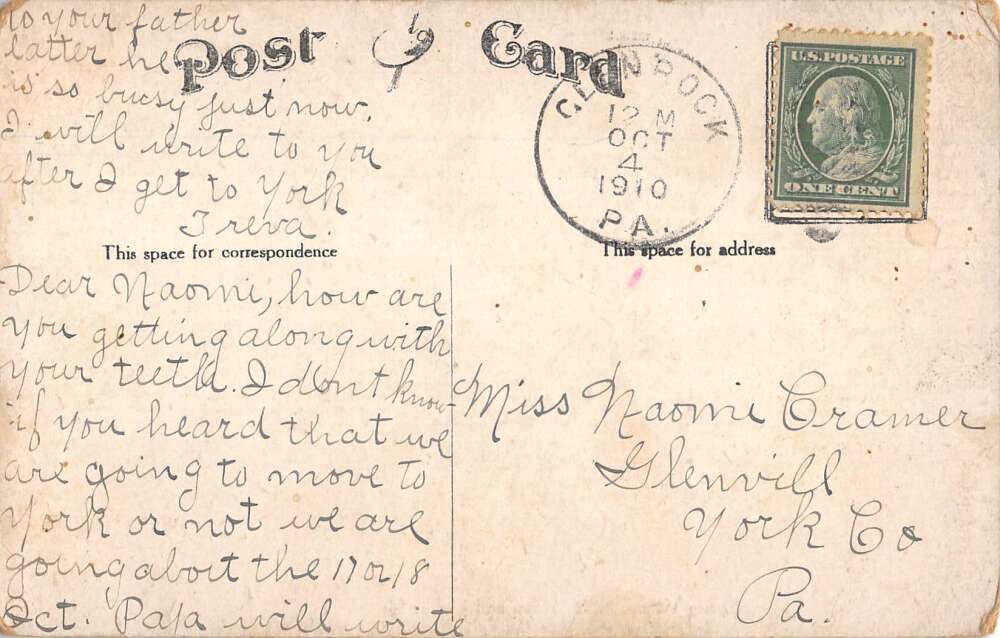 to your father
latter he
is so bucsy just now.
I will write to you
after I get to York
Treva.
Post Card
GLEN ROCK
12 M
OCT
4
1910
PA.
U.S. POSTAGE
ONE CENT
This space for correspondence
This space for address
Dear Naomi, how are
you getting along with
your teeth. I dont know
if you heard that we
are going to move to
York or not we are
going about the 17 or 18
Oct. Papa will write
Miss Naomi Cramer
Glenvill
York Co
Pa.